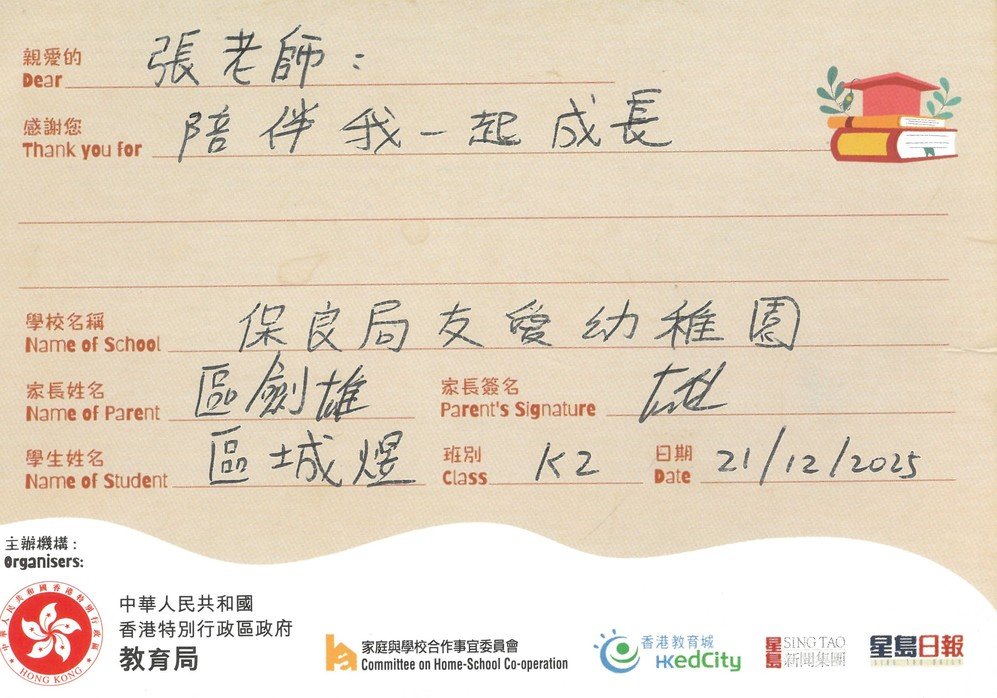 親愛的 張老師：
Dear
感謝您 陪伴我一起成長
Thank you for
學校名稱 保良局友愛幼稚園
Name of School
家長姓名 區劍雄 家長簽名
Name of Parent Parent's Signature
學生姓名 區城煜 班別 K2 日期 21/12/2025
Name of Student Class Date
主辦機構：
Organisers:
中華人民共和國香港特別行政區
HONG KONG
中華人民共和國
香港特別行政區政府
教育局
家庭與學校合作事宜委員會
Committee on Home-School Co-operation
香港教育城
HKedCity
星島 SING TAO
新聞集團
星島日報
SING TAO DAILY